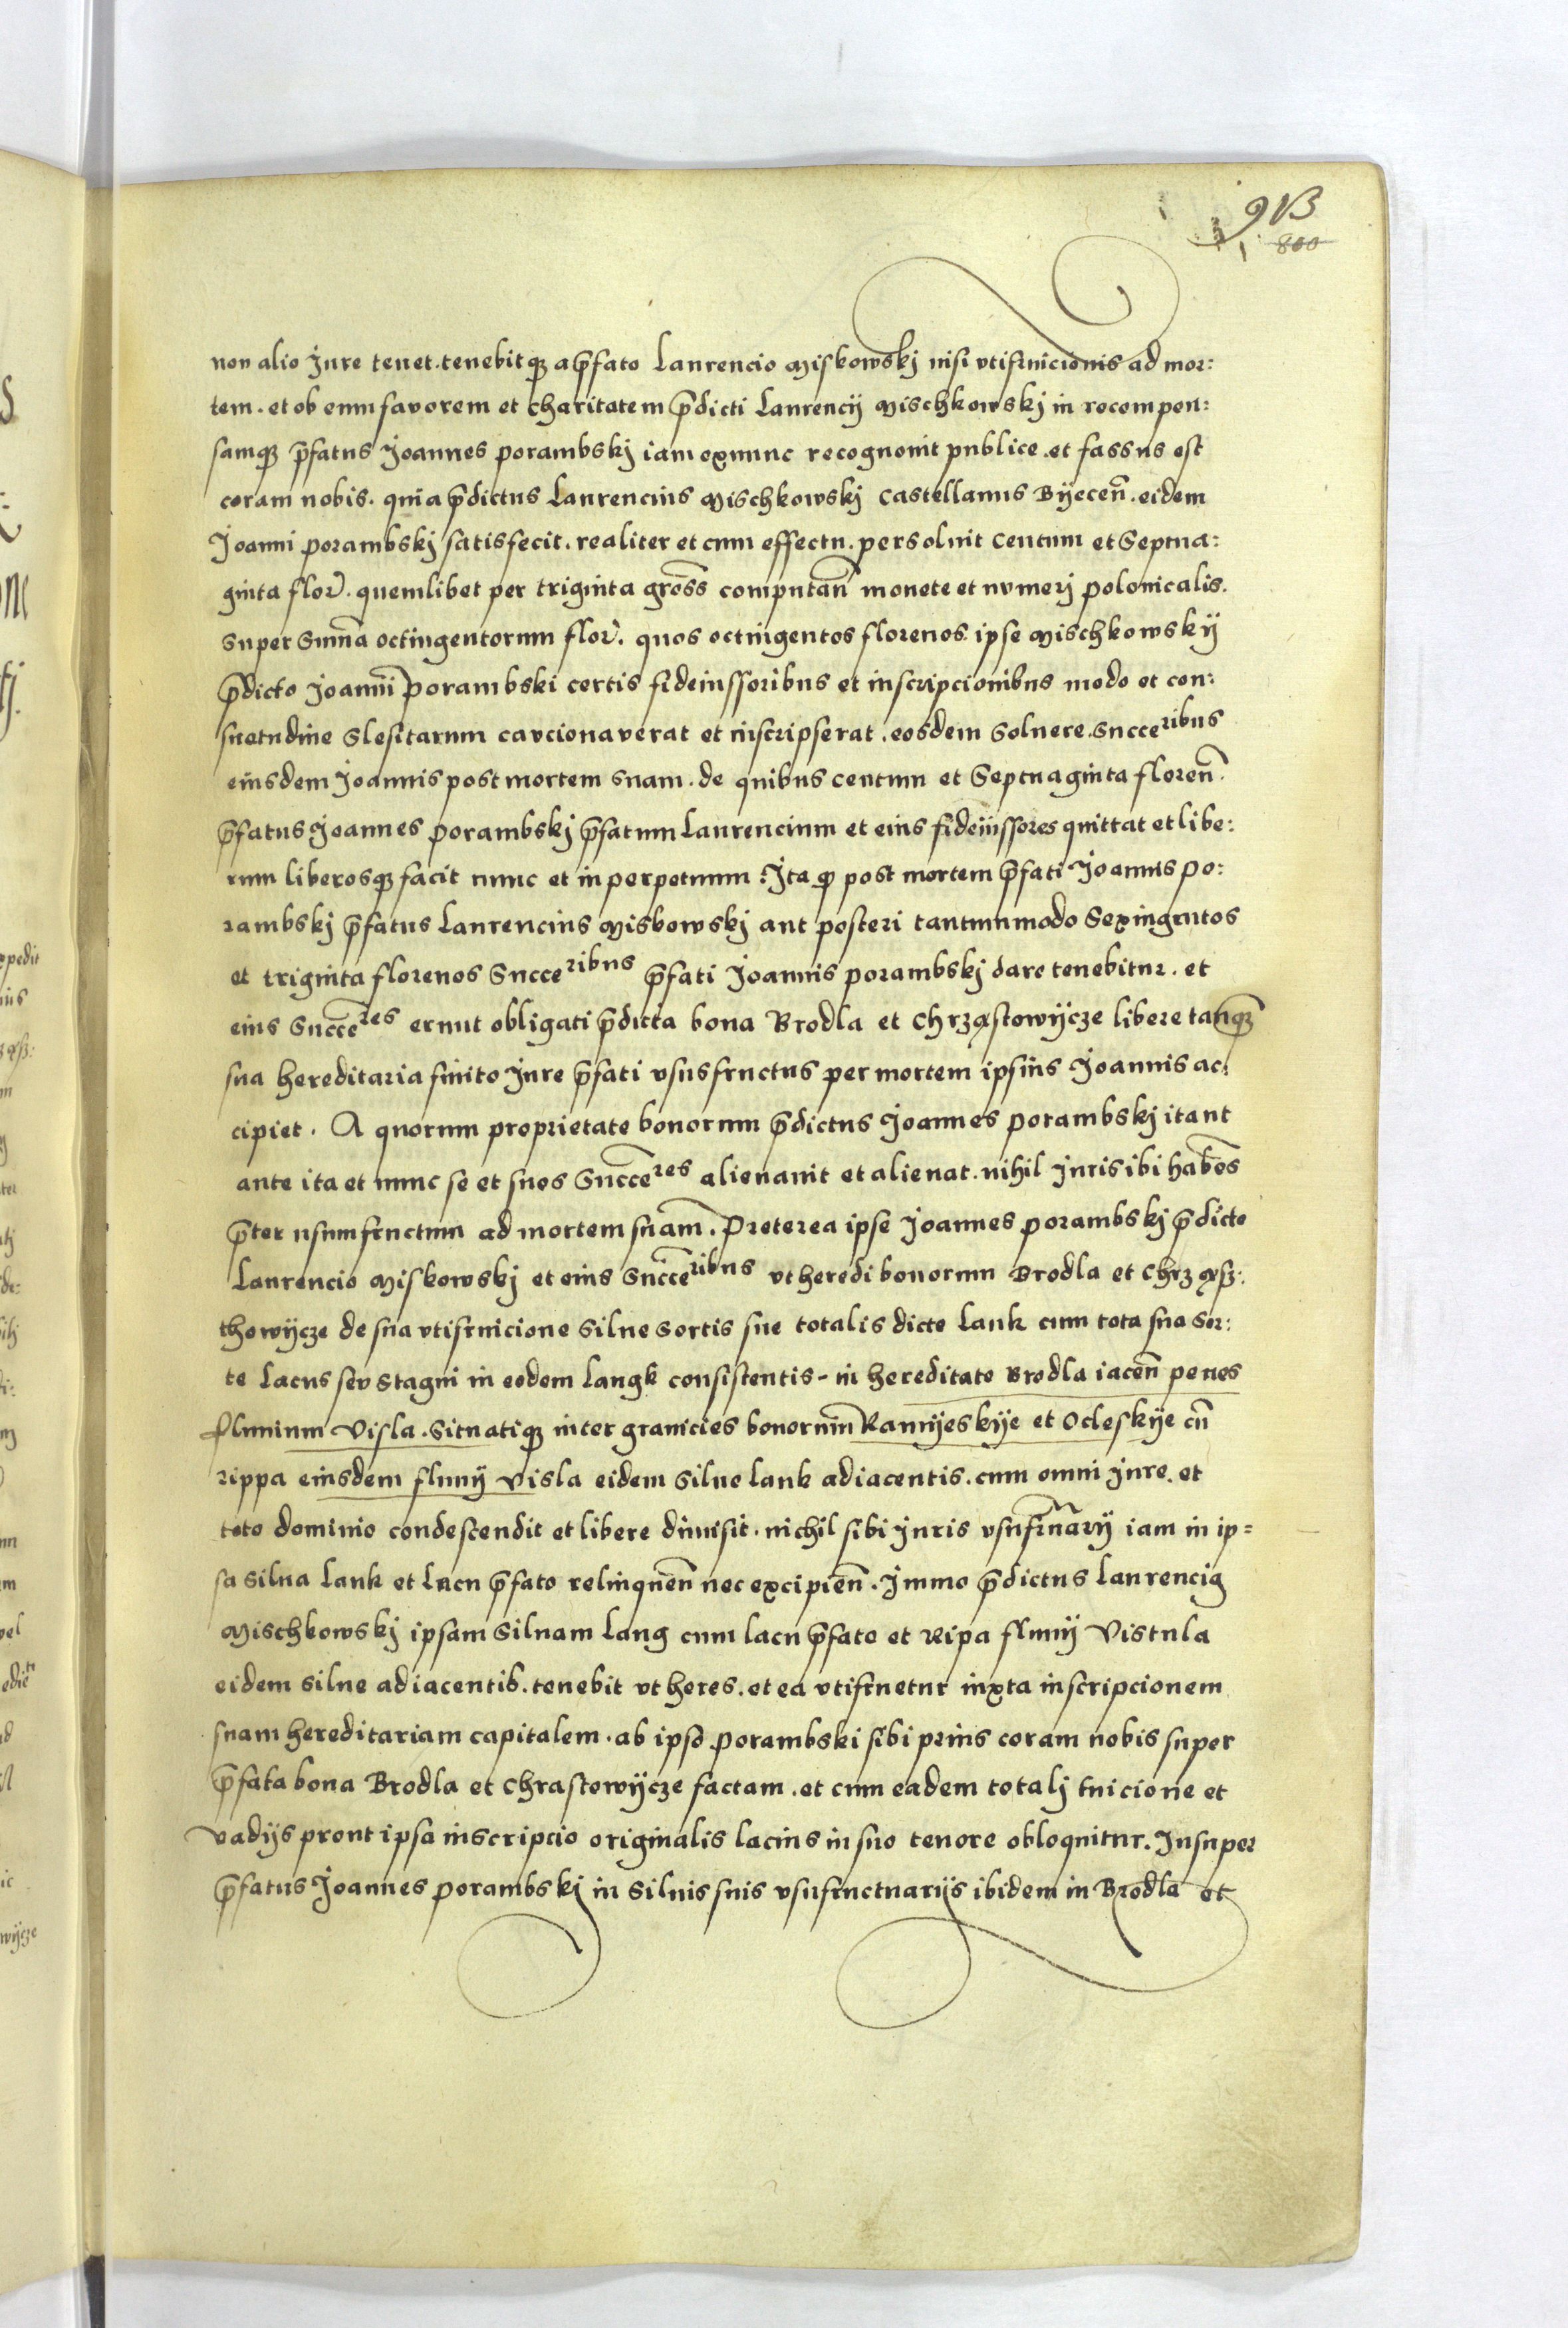 913
800
non alio Jure tenet. tenebitqȝ a p̄fato Laurencio Miskowskj nisi vtifruicionis ad mor:
tem. et ob eum favorem et charitatem p̄dicti Laurencij Mischkowskj in recompen:
samqȝ p̄fatus Joannes Porambskj iam exnunc recognouit publice. et fassus est
coram nobis. quia p̄dictus Laurencius Mischkowskj Castellanus Byecen̄. eidem
Joanni Porambskj satisfecit. realiter et cum effectu. persoluit Centum et Septua:
ginta flor̄. quemlibet per triginta gros̄s computan̄ monete et numerj Polonicalis.
super Sum̄a octingentorum flor̄. quos octingentos florenos ipse Mischkowskÿ
p̄dicto Joanni Porambski certis fideiussoribus et inscripcionibus modo et con:
suetudine Slesitarum caucionaverat et inscripserat. eosdem Soluere. Succeribus
eiusdem Joannis post mortem suam. de quibus Centum et Septuaginta floren̄.
p̄fatus Joannes Porambskj p̄fatum Laurencium et eius fideiussores quittat et libe:
rum liberosqȝ facit nunc et in perpetuum. Ita ꝙ post mortem p̄fati Joannis Po:
rambskj p̄fatus Laurencius Miskowskj aut posteri tantummodo Sexingentos
et triginta florenos Succeribus p̄fati Joannis Porambskj dare tenebitur. et
eius Succ̄eres erunt obligati p̄dicta bona Brodla et Chrząstowÿcze libere tanqȝ
sua hereditaria finito Jure p̄fati vsusfructus per mortem ipsius Joannis ac:
cipiet. A quorum proprietate bonorum p̄dictus Joannes Porambskj ita ut
ante ita et nunc se et suos Succ̄eres alienauit et alienat. nihil Juris ibi hab̄es
p̄ter usumfructum ad mortem suam. Preterea ipse Joannes Porambskj p̄dicto
Laurencio Miskowskj et eius Succ̄eribus vt heredi bonorum Brodla et Chrząsz:
thowÿcze de sua vtifruicione Silue Sortis sue totalis dicte Lank cum tota sua Sor:
te Lacus seu Stagni in eodem Langk consistentis - in hereditate Brodla iacen̄ penes
fluuium Visla. Situatiqȝ inter granicies bonorum Ramÿeskÿe et Ocleskÿe cū
rippa eiusdem fluuÿ Visla eidem Silue Lank adiacentis. cum omni Jure. et
toto dominio condescendit et libere dimisit. nichil sibi Juris vsufru̅arÿ iam in ip=
sa Silua Lank et Lacu p̄fato relinquen̄ nec excipien̄. Immo p̄dictus Laurenciꝯ
Mischkowskj ipsam Siluam Lang cum lacu p̄fato et Ripa fluuÿ Vistula
eidem Silue adiacentis. tenebit vt heres. et ea vtifruetur iuxta inscripcionem
suam hereditariam capitalem. ab ipso Porambski sibi prius coram nobis super
p̄fata bona Brodla et Chrastowÿcze factam. et cum eadem totalj tuicione et
vadÿs prout ipsa inscripcio originalis lacius in suo tenore obloquitur. Insuper
p̄fatus Joannes Porambskj in Siluis suis vsufructuarÿs ibidem in Brodla et